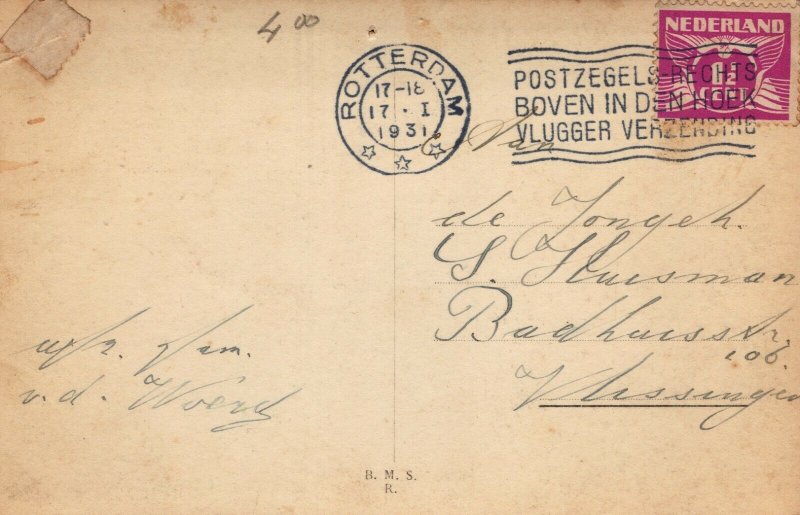 4 00
NEDERLAND
1½
CENT
ROTTERDAM
17-18
17 · I
1931
POSTZEGELS RECHTS
BOVEN IN DEN HOEK
VLUGGER VERZENDING
Aan
de Jongeh.
S. Huisman
Badhuisstr.
106
Vlissingen
afz. fam.
v. d. Woerd
B. M. S.
R.